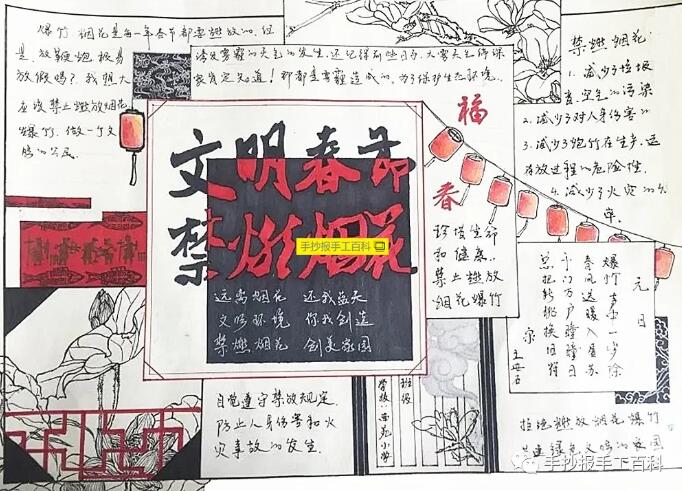 爆竹 烟花是每一年春节都要燃放的.但
是.放鞭炮极易
诱发雾霾的天气的发生.还记得那些日子.大雾天气你保
放假吗？我想大
家肯定知道！那都是雾霾造成的.为了保护生态环境..
应该禁止燃放烟花
爆竹.做一个文
明的公民
禁燃烟花:
1.减少了垃圾
空气的污染
2.减少了对人身伤害
3.减少了炮竹在生产.运
存放过程的危险性.
4.减少了火灾的
福
春
文明春节
禁燃烟花
手抄报手工百科
远离烟花 还我蓝天
文明环境 你我创造
禁燃烟花 创美家园
珍惜生命
和健康.
禁止燃放
烟花爆竹
元日
宋 王安石
爆竹声中一岁除
春风送暖入屠苏
千门万户曈曈日
总把新桃换旧符
自觉遵守禁放规定.
防止人身伤害和火
灾事故的发生.
班级
学校:西苑小学
拒绝燃放烟花爆竹
共建绿色文明的家园
手抄报手工百科